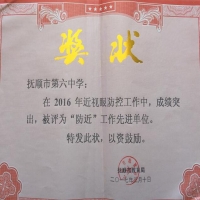 奖状
抚顺市第六中学：
在2016年近视眼防控工作中，成绩突
出，被评为“防近”工作先进单位。
特发此状，以资鼓励。